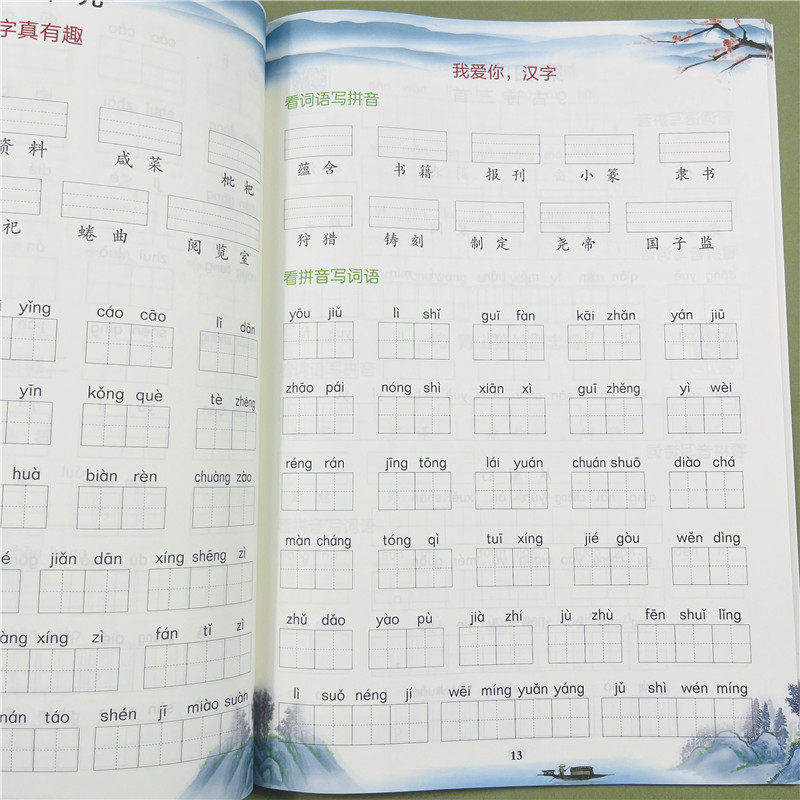 字真有趣
资料 咸菜 枇杷
祀 蜷曲 阅览室
yǐng cáo cāo lǐ dān
yīn kǒng què tè zhēng
huà biàn rèn chuàng zào
jiǎn dān xíng shēng zì
xíng zì fán tǐ zì
nán táo shén jī miào suàn
我爱你，汉字
看词语写拼音
蕴含 书籍 报刊 小篆 隶书
狩猎 铸刻 制定 尧帝 国子监
看拼音写词语
yōu jiǔ lì shǐ guī fàn kāi zhǎn yán jiū
zhāo pái nóng shì xiān xì guī zhěng yì wèi
réng rán jīng tōng lái yuán chuán shuō diào chá
màn cháng tóng qì tuī xíng jié gòu wěn dìng
zhǔ dǎo yào pù jià zhí jù zhù fēn shuǐ lǐng
lì suǒ néng jí wēi míng yuǎn yáng jǔ shì wén míng
13